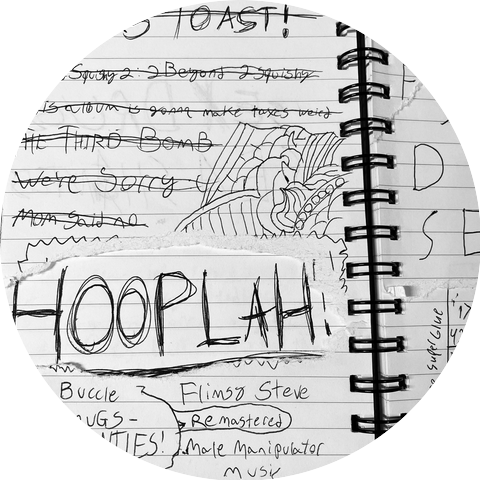 TOAST!
Squishy 2: 2 Beyond 2 Squishy
is album is gonna make taxes weird
THE THIRD BOMB
We're Sorry
Mom Said no
HOOPLAH!
Buccle
Flimsy Steve
UGS-
Remastered
NTIES!
Male Manipulator
Music
D
SE
Super Glue